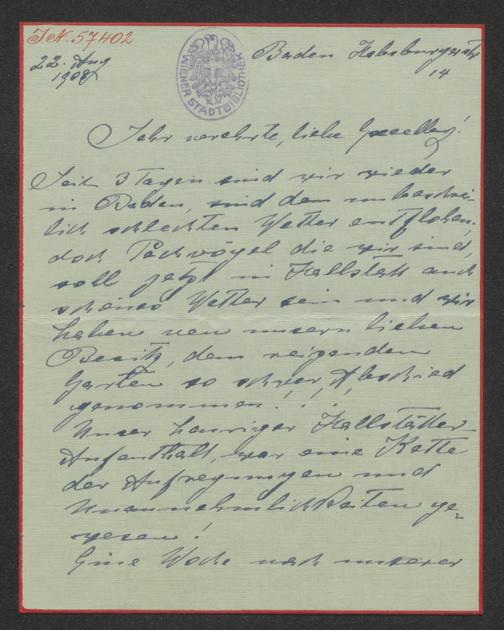 I.N. 57402
22. Aug
1908
WIENER STADTBIBLIOTHEK
Baden Habsburgerstr
14
Sehr verehrte, liebe
Seit 3 Tagen sind wir wieder
in Baden, sind dem unbeschreib-
lich schlechten Wetter entflohen,
doch Pechvögel die wir sind,
soll jetzt in Hallstatt auch
schönes Wetter sein und wir
haben von unsern lieben
Besitz, dem reizenden
Garten so schwer, Abschied
genommen! ! !
Unser heuriger Hallstätter-
Aufenthalt, war eine Kette
der Aufregungen und
Unannehmlichkeiten ge-
wesen!
Eine Woche nach unserer